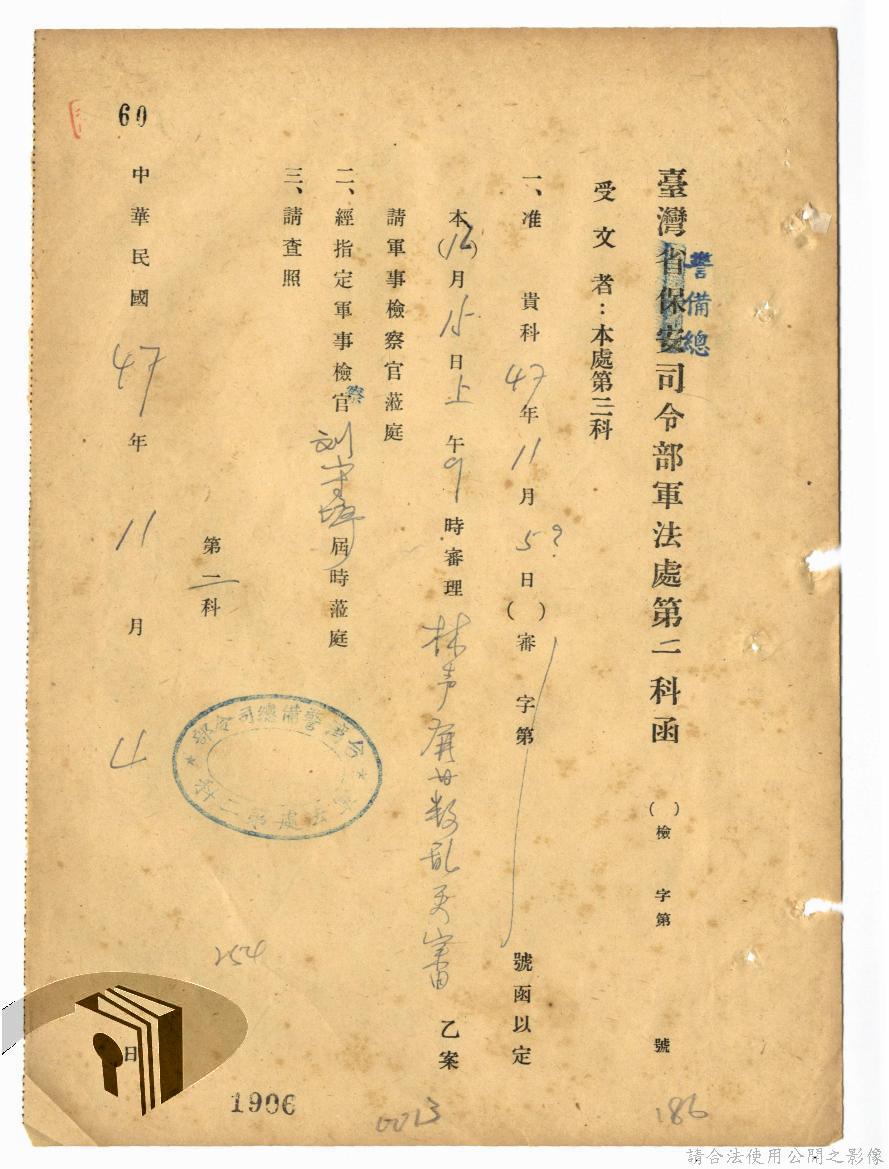 臺灣省保安司令部軍法處第二科函
警備總
( )檢 字第 號
受文者：本處第三科
一、准 貴科47年11月5日( )審 字第 號函以定
本(12)月15日上午9時審理 林声 叛乱更審 乙案
請軍事檢察官蒞庭
二、經指定軍事檢官 刘 屆時蒞庭
察
三、請查照
第二科
台灣警備總司令部
軍法處第二科
中華民國 47 年 11 月 日
60
254
1906
0013
186
請合法使用公開之影像